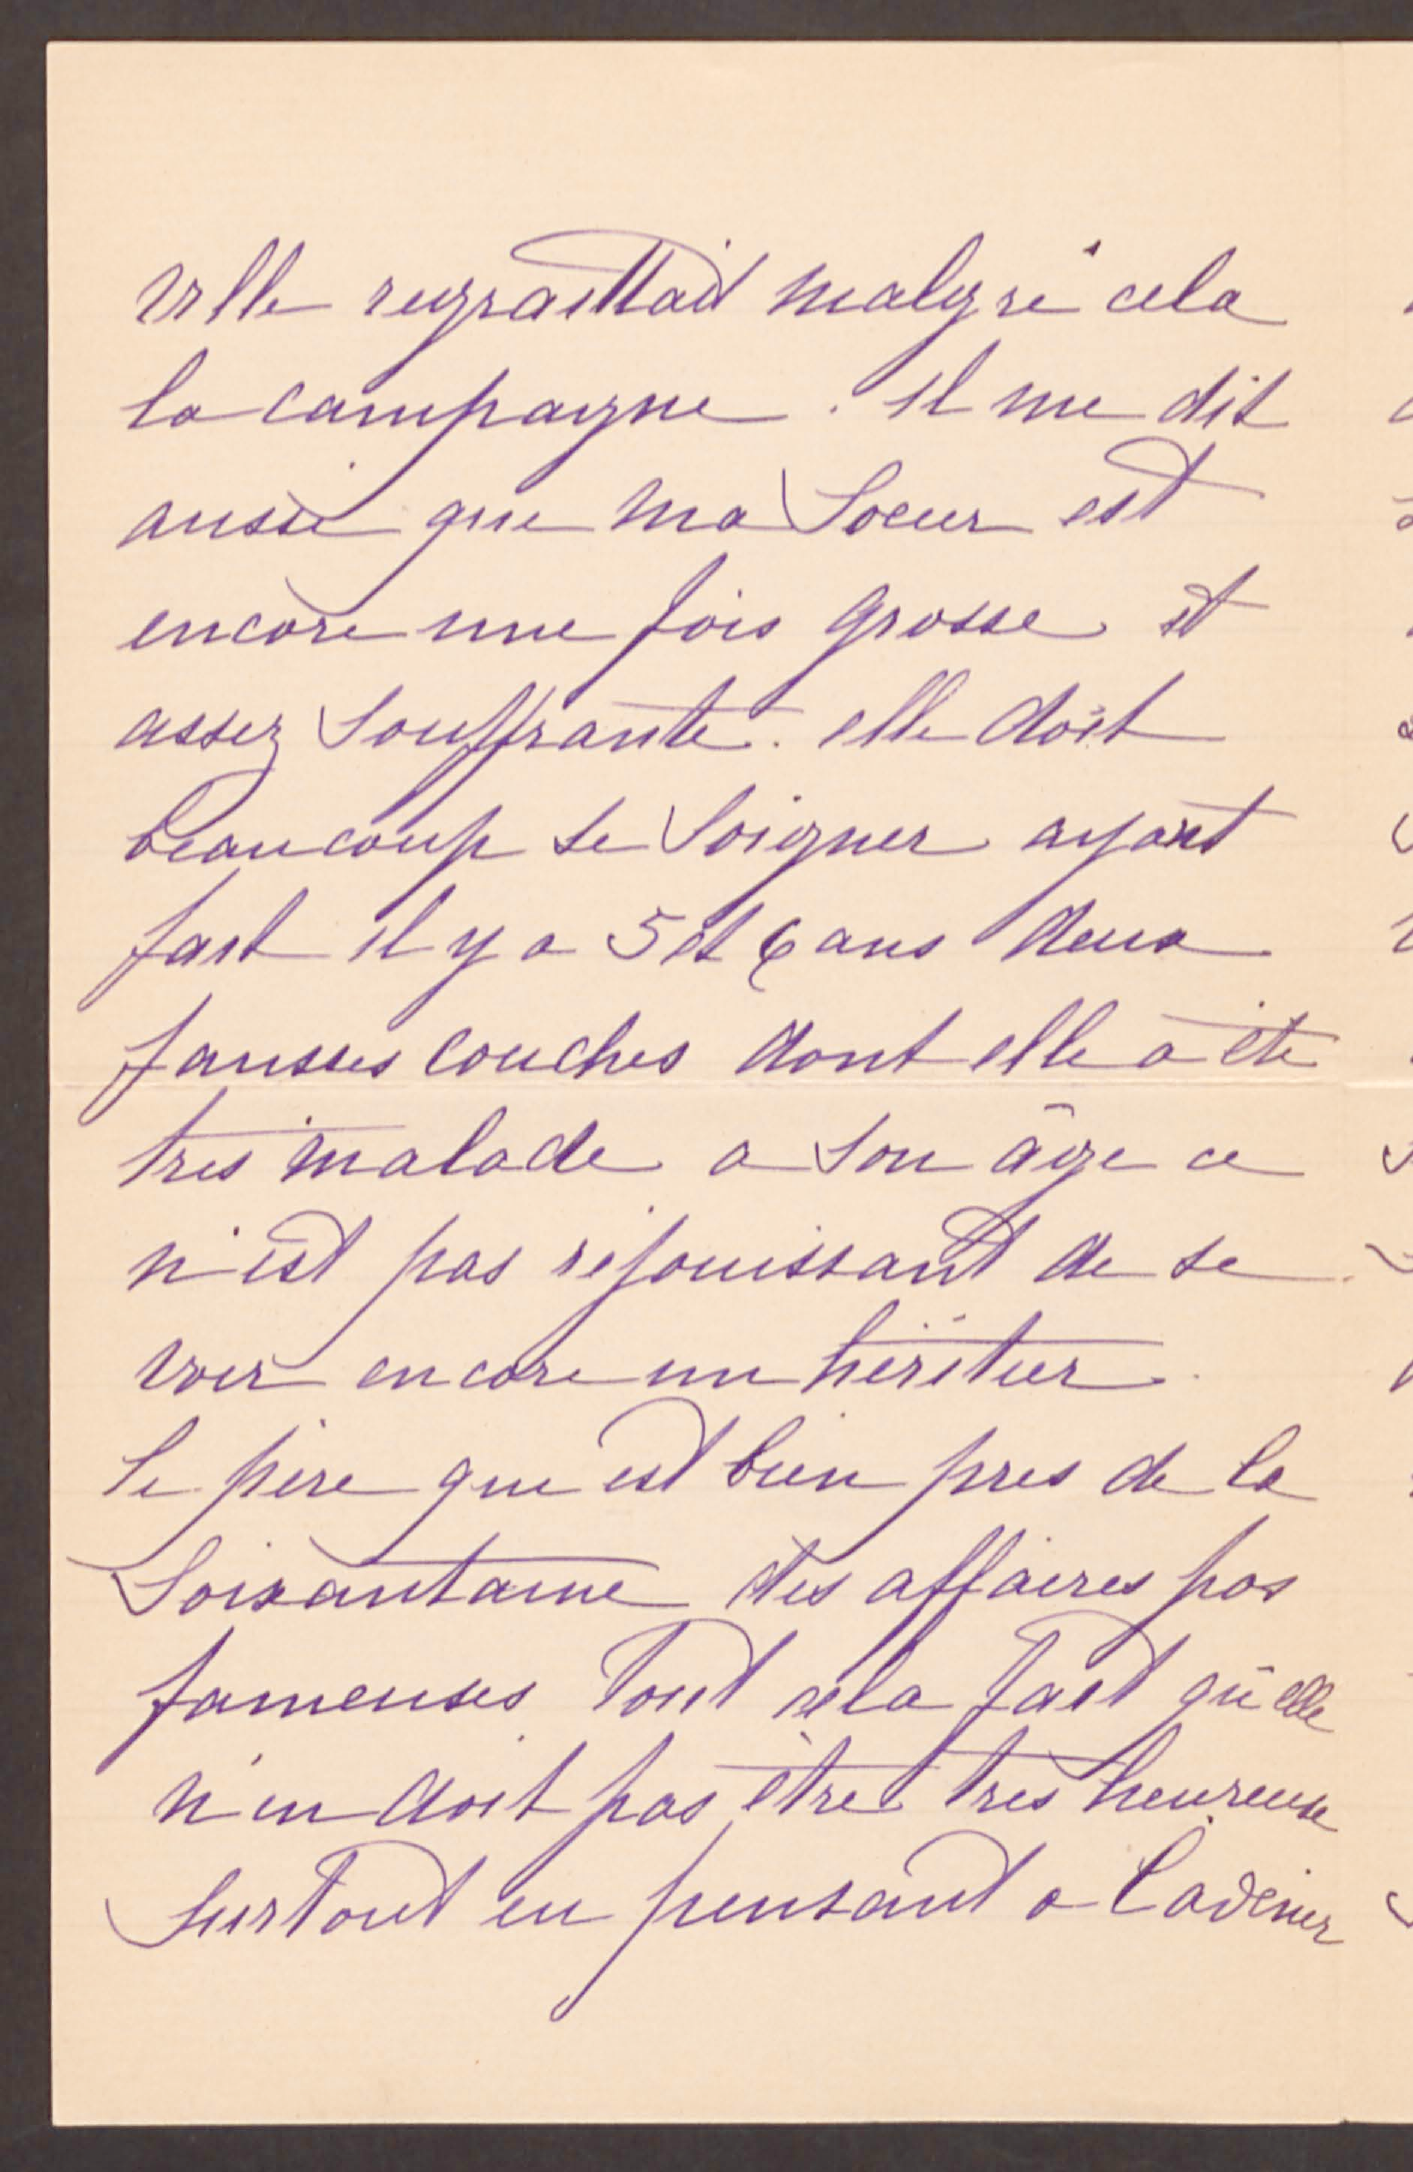 ville regraittait malgré cela
la campagne. il me dit
aussi que ma Soeur est
encore une fois grosse et
assez Souffrante. elle doit
beaucoup se Soigner ayant
fait il y a 5 et 6 ans deux
fausses couches dont elle a été
tres malade a Son âge ce
n'est pas rejouissant de se
voir encore un héritier.
Le père que est bien pres de la
Soixantaine des affaires pas
fameuses Tout cela fait qu'elle
n'en doit pas être tres heureuse
SurTout en pensant a l'avenir